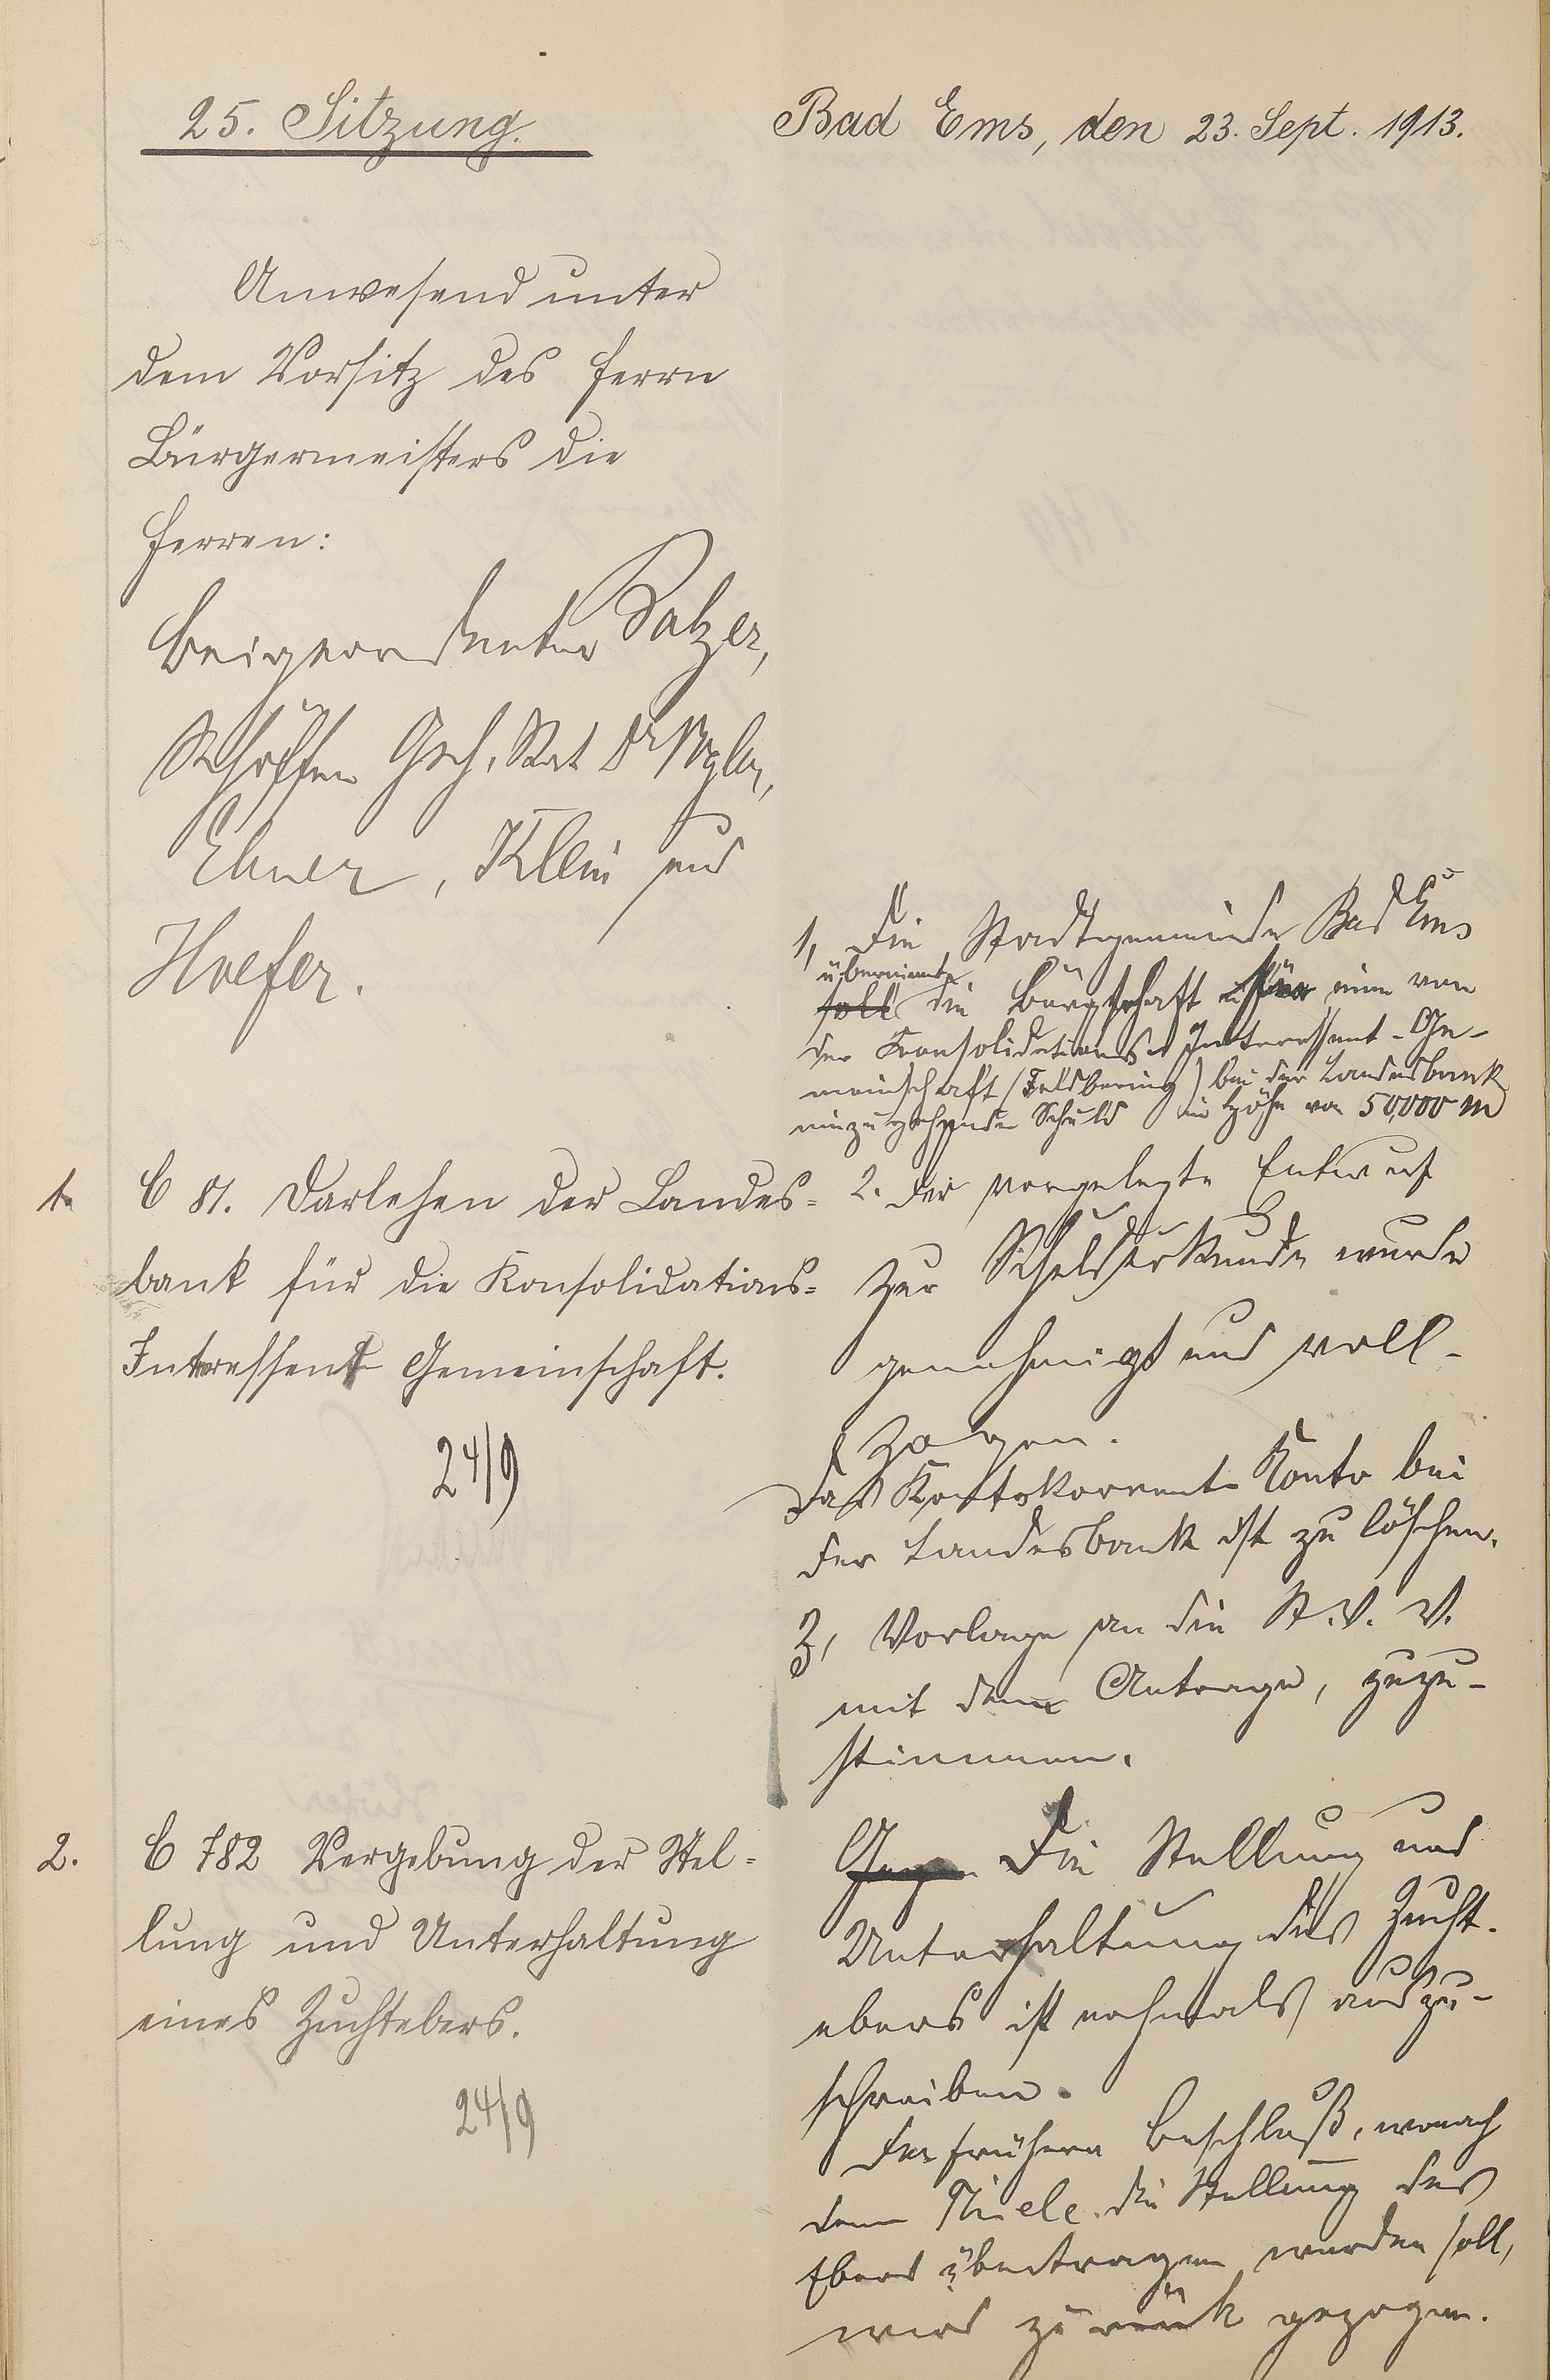 25. Sitzung.
Bad Ems, den 23. Sept. 1913.
Anwesend unter
dem Vorsitz des Herrn
Bürgermeisters die
Herren:
Beigeordneter Balzer,
Schöffen Geh. Rat Dr
Ebner, Klein und
Hoefer.
1, Die Stadtgemeinde Bad Ems
übernimmt
soll die Bürgschaft für eine von
der Konsolidations-Interessent-Ge-
meinschaft (Feldbering) bei der Landesbank
einzugehende Schuld in Höhe von 50,000 M
1. C 81. Darlehen der Landes=
bank für die Konsolidations=
Interessent Gemeinschaft.
24/9
2. Der vorgelegte Entwurf
zur Schuldurkunde wurde
genehmigt und voll-
zogen.
Das Kontokorrent-Konto bei
der Landesbank ist zu löschen.
3, Vorlage an die St. V. V.
mit dem Antrage, zuzu-
stimmen.
2. C 782 Vergebung der Stel=
lung und Unterhaltung
eines Zuchtebers.
24/9
Gegen Die Stellung und
Unterhaltung des Zucht-
ebers ist nochmals auszu-
schreiben.
Der frühere Beschluß, wonach
dem Thiele die Stellung des
Ebers übertragen werden soll,
wird zurück gezogen.